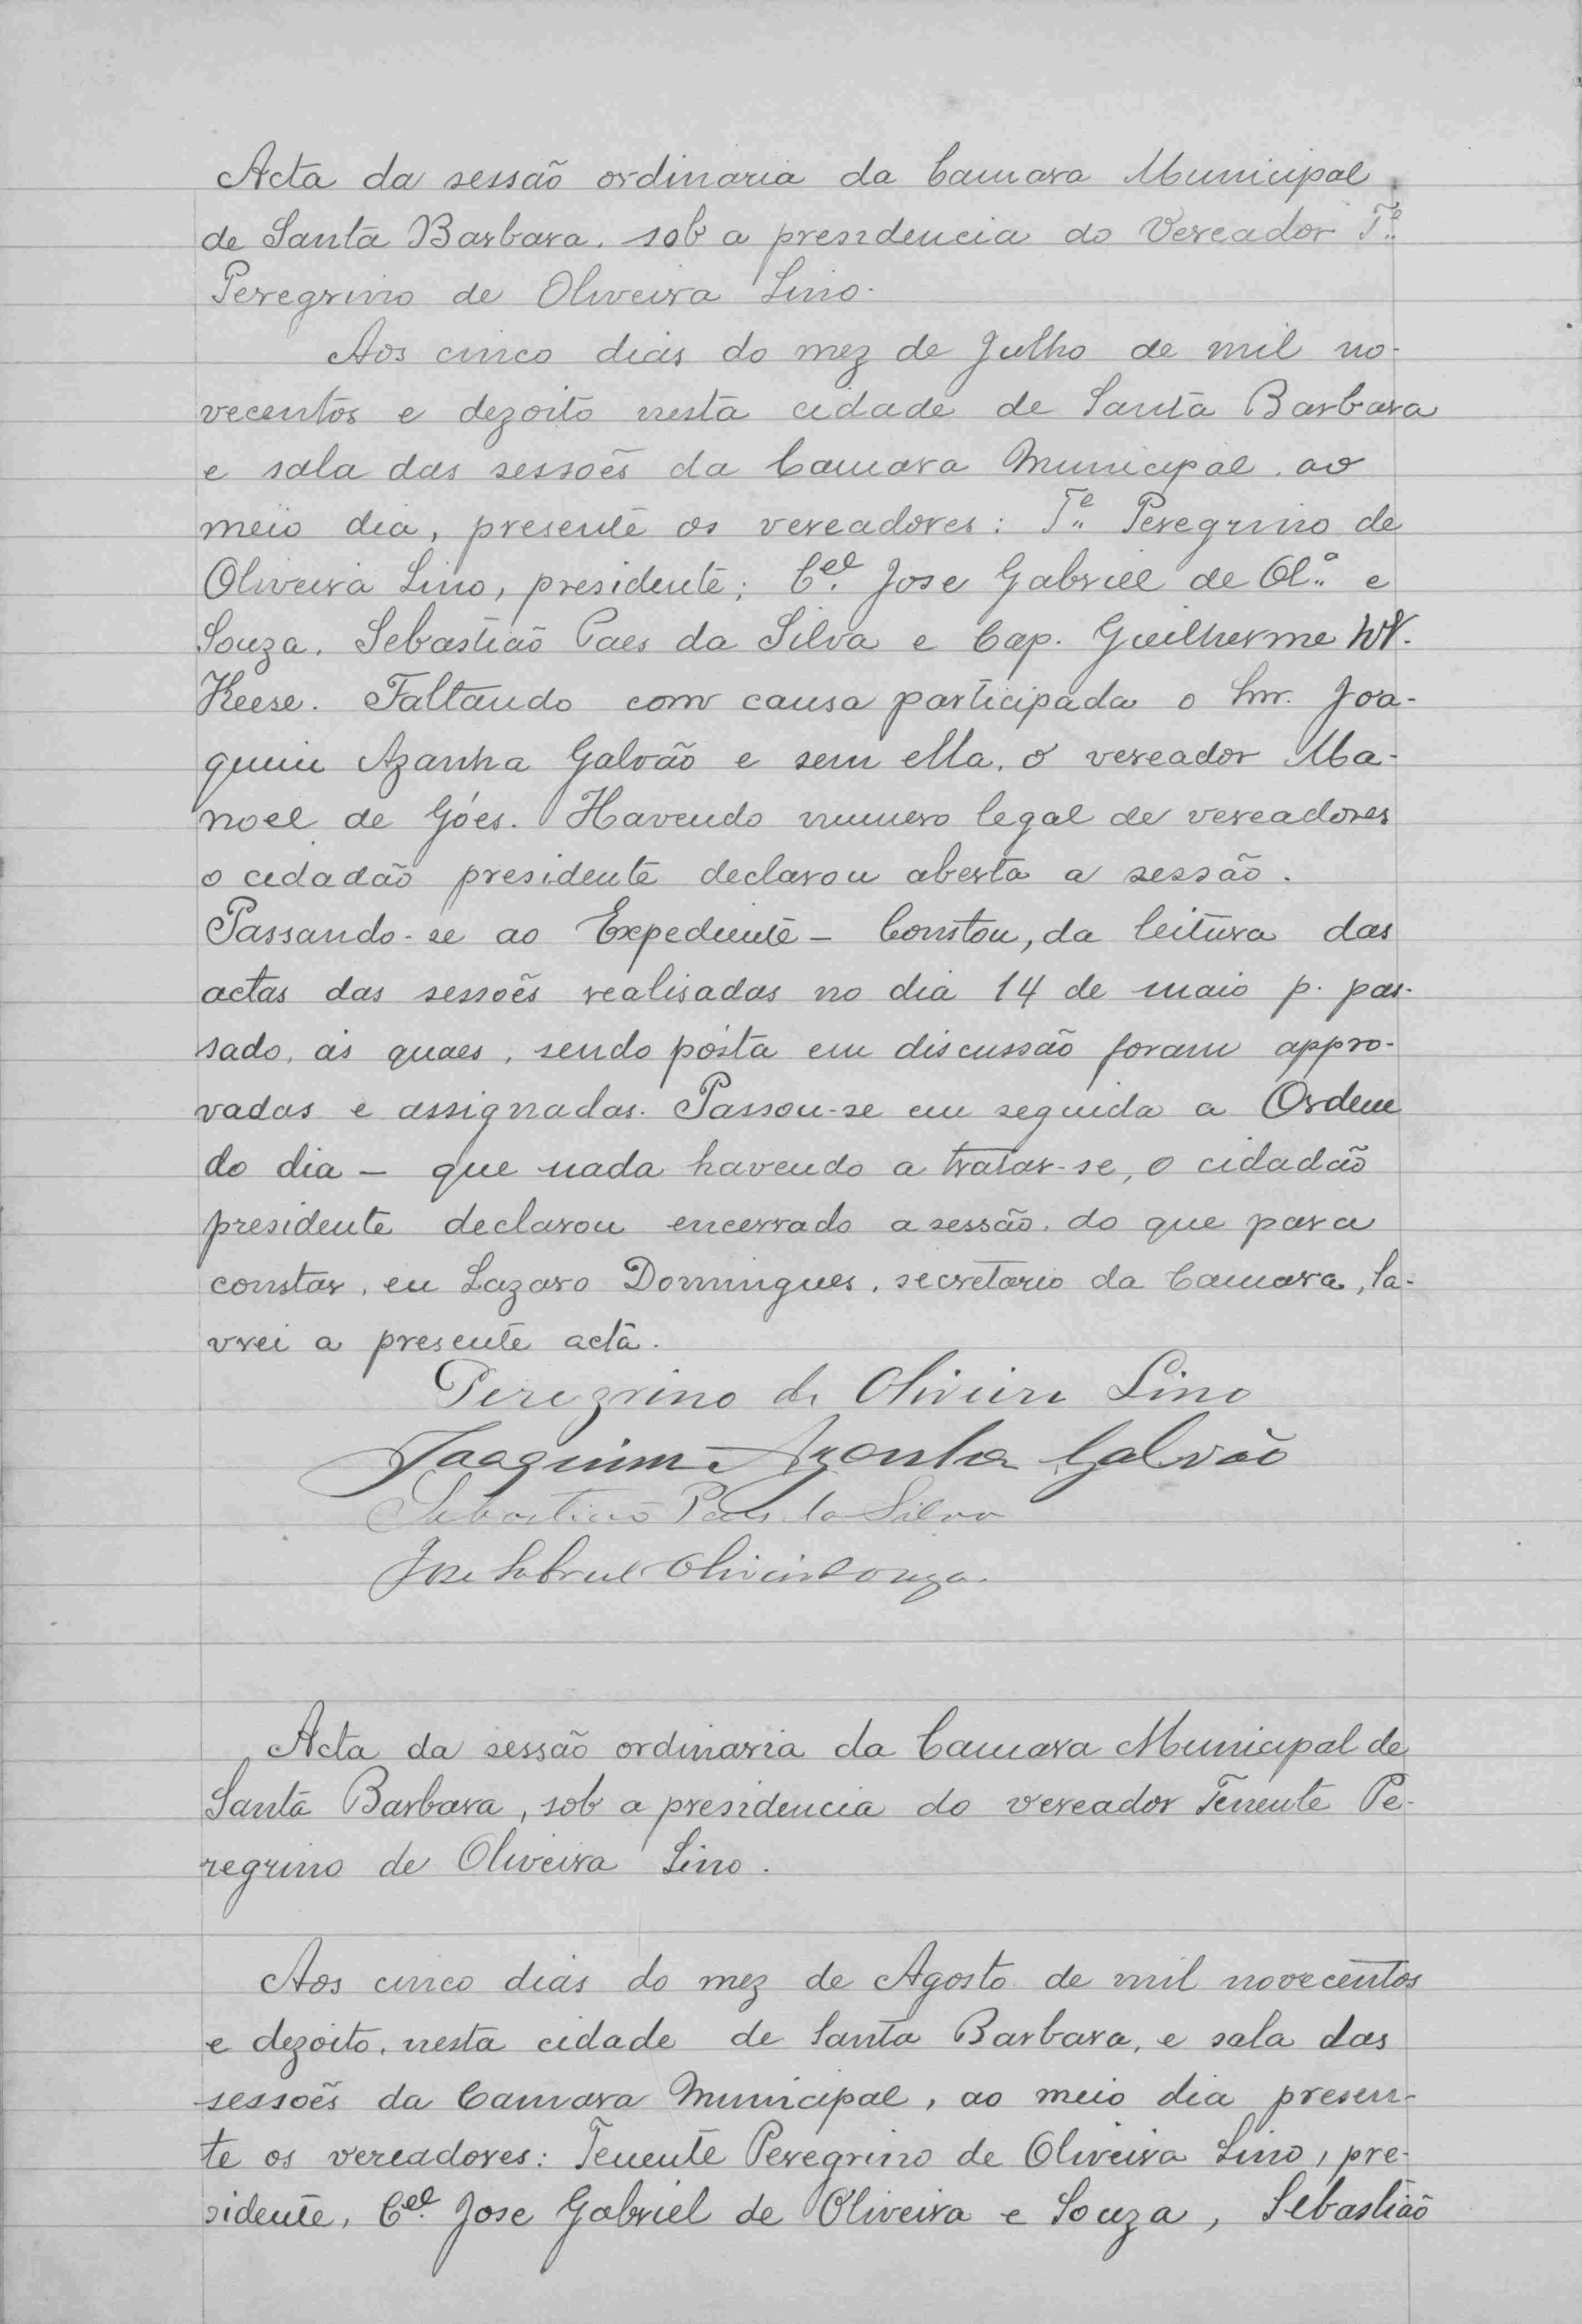 Acta da sessão ordinaria da Camara Municipal
de Santa Barbara, sob a presidencia do Vereador Te.
Peregrino de Oliveira Lino.
Aos cinco dias do mez de Julho de mil no-
vecentos e dezoito nesta cidade de Santa Barbara
e sala das sessoẽs da Camara Municipal, ao
meio dia, presente os vereadores: Te. Peregrino de
Oliveira Lino, presidente; Cel. Jose Gabriel de Olª. e
Souza, Sebastião Paes da Silva e Cap. Guilherme W.
Keese. Faltando com causa participada o Snr. Joa-
quim Azanha Galvão e sem ella, o vereador Ma-
noel de Góes. Havendo numero legal de vereadores
o cidadão presidente declarou aberta a sessão.
Passando-se ao Expediente - Constou, da leitura das
actas das sessoẽs realisadas no dia 14 de maio p. pas-
sado, as quaes, sendo posta em discussão foram appro-
vadas e assignadas. Passou-se em seguida a Ordem
do dia - que nada havendo a tratar-se, o cidadão
presidente declarou encerrado a sessão, do que para
constar, eu Lazaro Domingues, secretario da Camara, la-
vrei a presente acta.
Peregrino de Oliveira Lino
Joaquim Azanha Galvão
Sebastião Paes da Silva
Jose Gabriel Oliveira Souza.
Acta da sessão ordinaria da Camara Municipal de
Santa Barbara, sob a presidencia do vereador Tenente Pe-
regrino de Oliveira Lino.
Aos cinco dias do mez de Agosto de mil novecentos
e dezoito, nesta cidade de Santa Barbara, e sala das
sessoẽs da Camara Municipal, ao meio dia presen-
te os vereadores: Tenente Peregrino de Oliveira Lino, pre-
sidente, Cel. Jose Gabriel de Oliveira e Souza, Sebastião